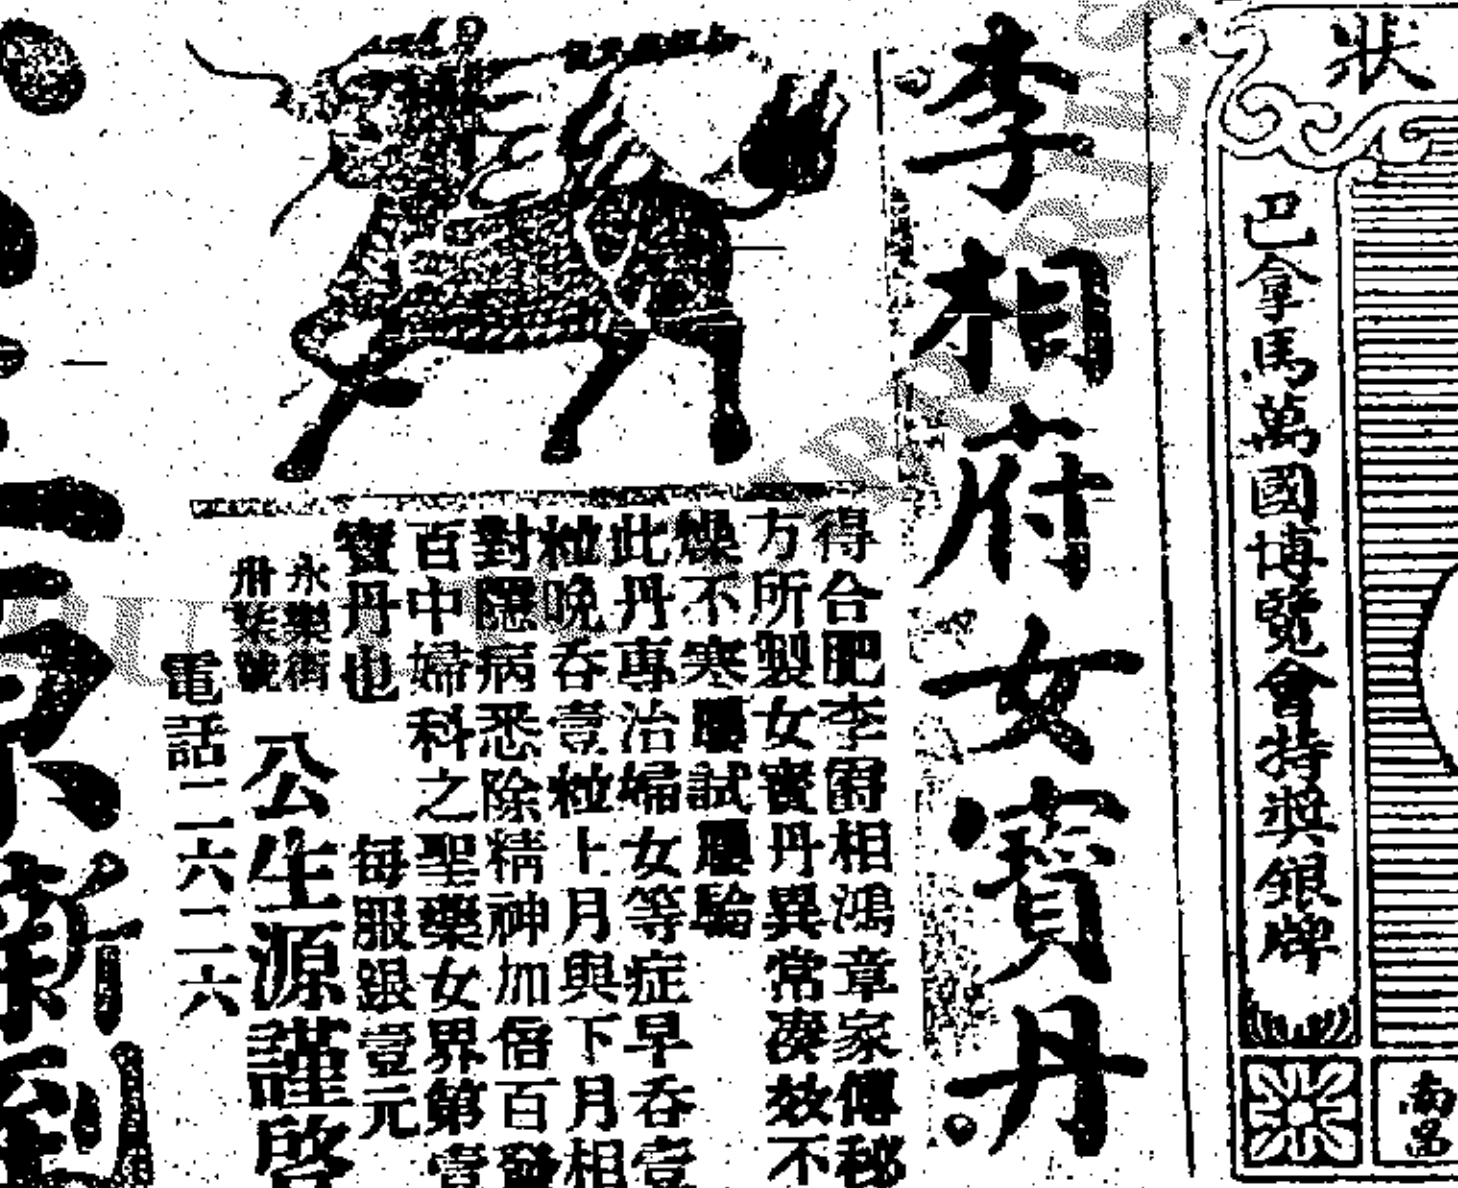 狀
巴拿馬萬國博覽會特奨銀牌
南昌
李相府女寶丹
得合肥李爵相鴻章家傳秘
方所製女寶丹異常凑效不
燥不寒屢試屢騐
此丹專治婦女等症早吞壹
粒晚吞壹粒上月與下月相
對隱病悉除精神加倍百發
百中婦科之聖藥女界第壹
寶丹也 每服銀壹元
永樂街
卅柒號
公生源謹啓
電話二六二六
新到